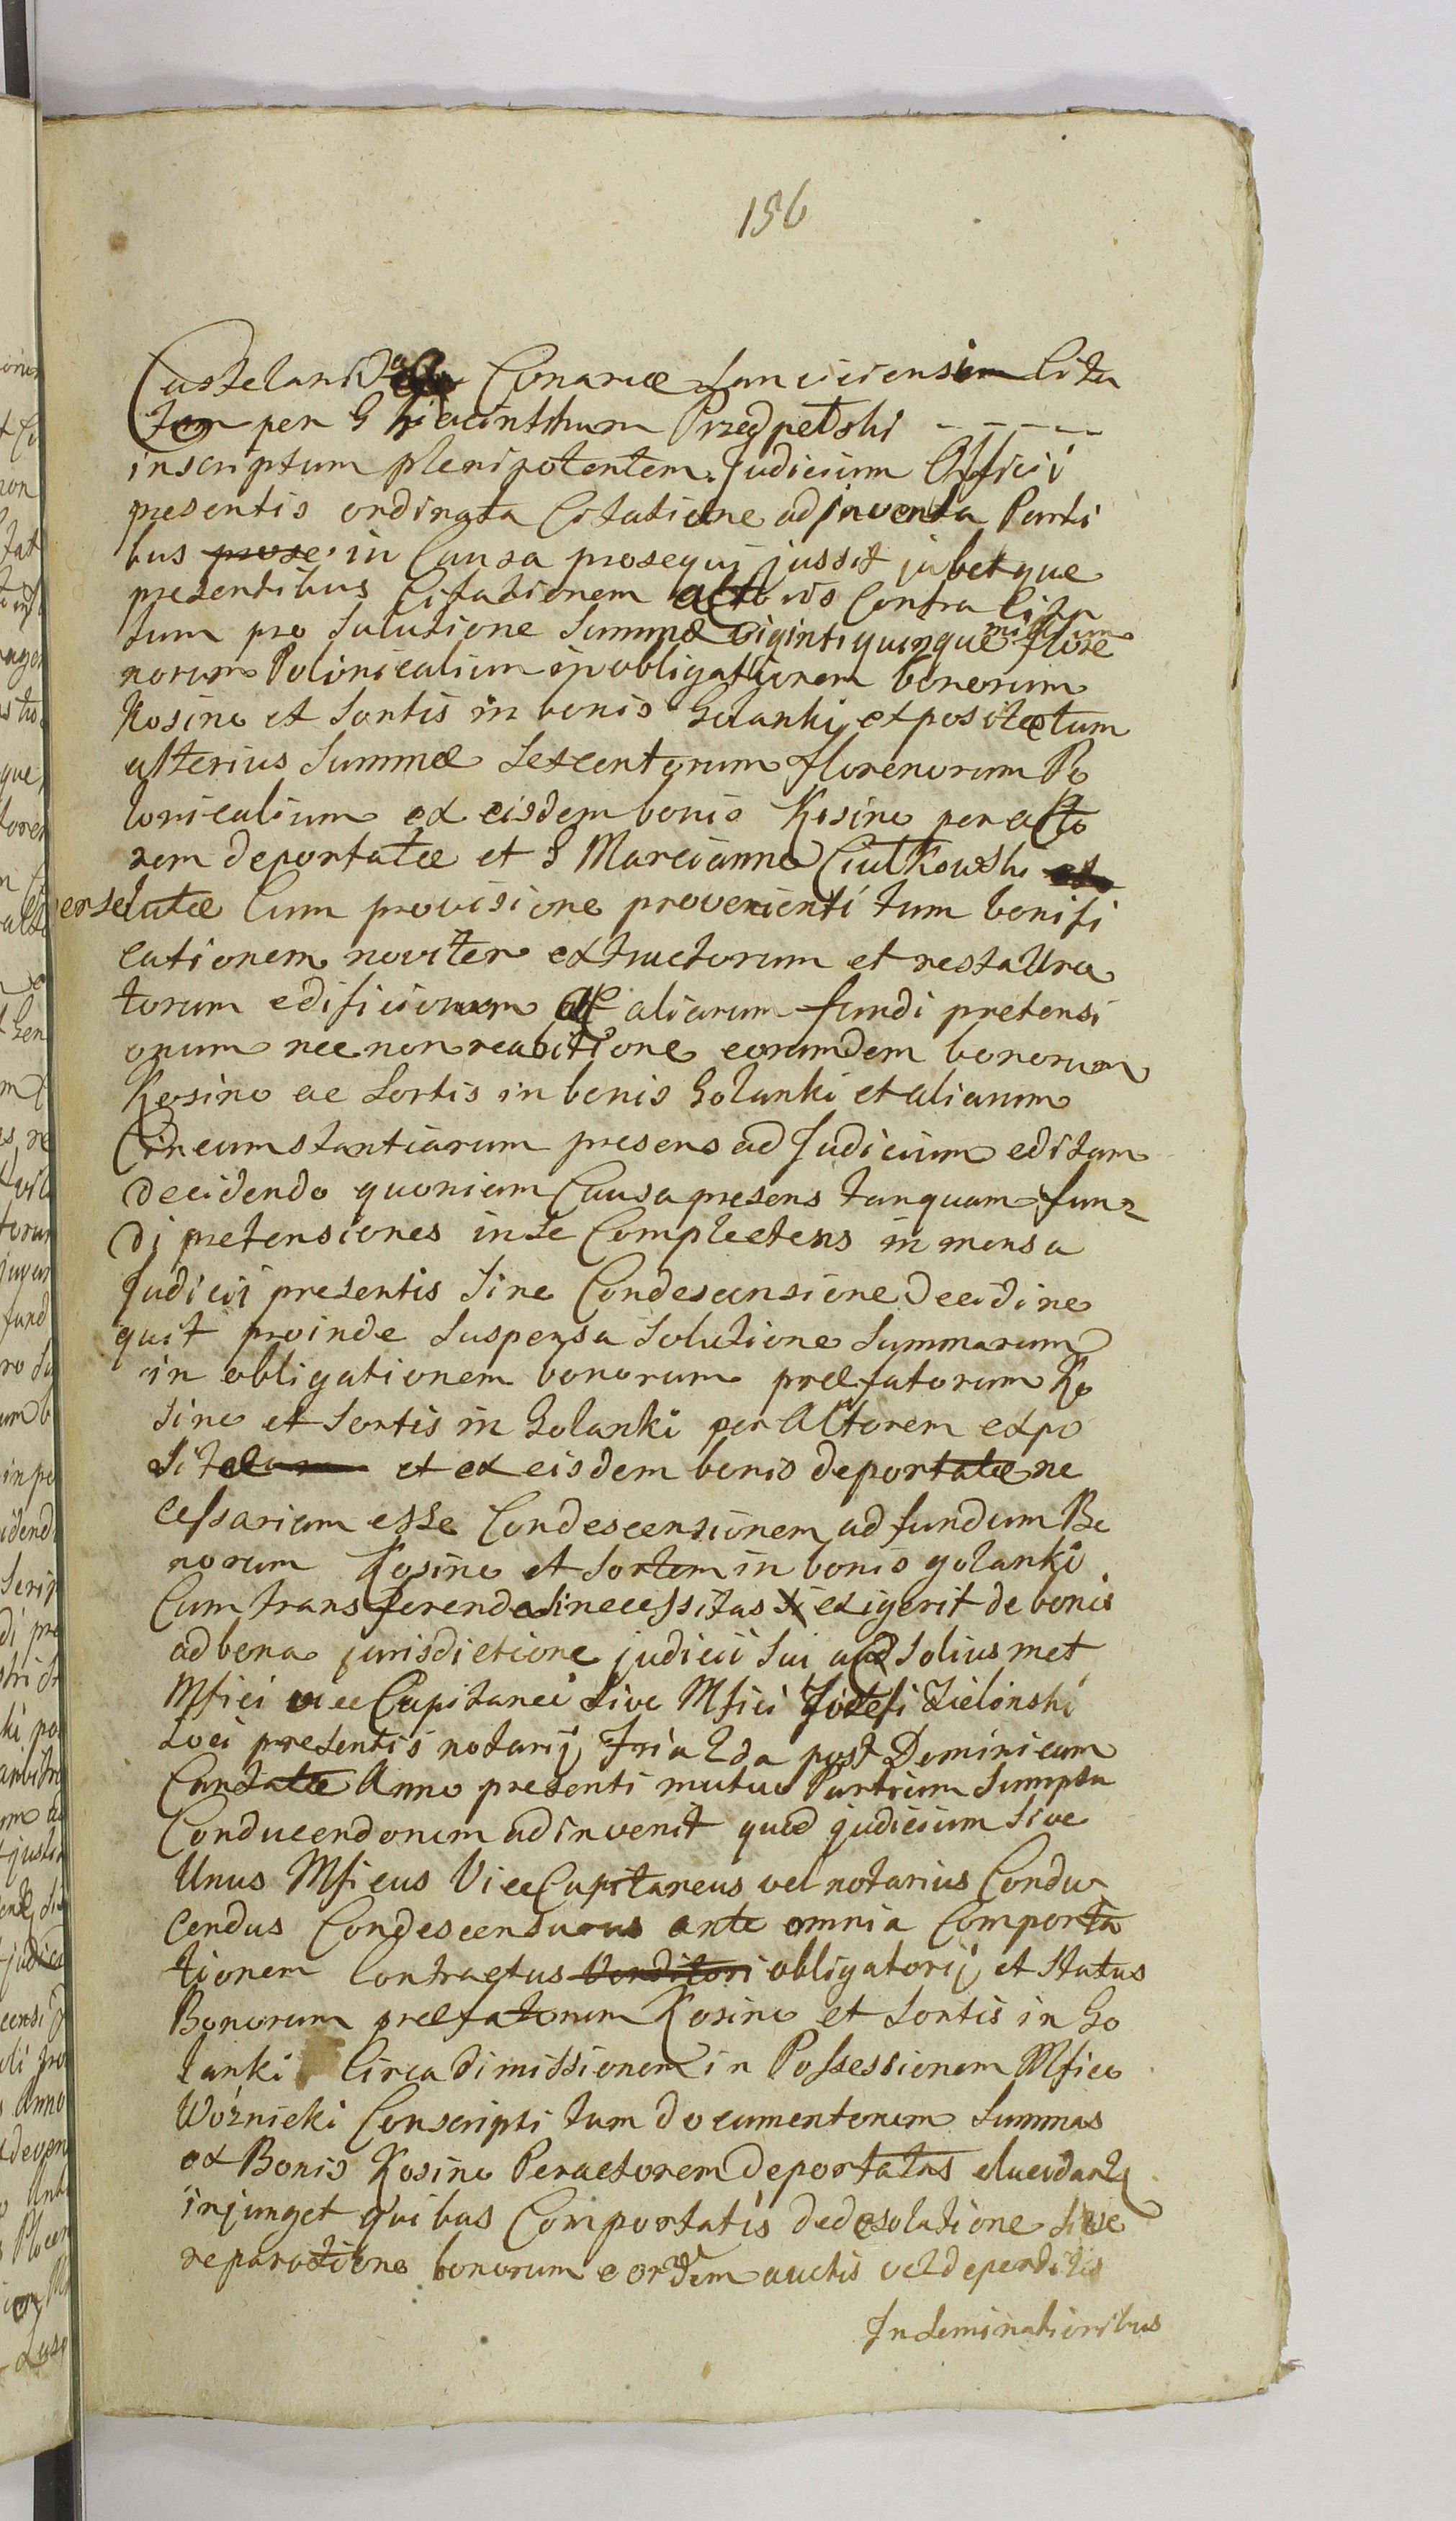 156
Castelanid Conariæ Lanciciensem Cita
tam per G Hiacinthum Przedpełski - - - - -
inscriptum plenipotentem. Judicium Officii
presentis ordinata Citatione adinventa Parti
bus prose in Causa prosequi jussit jubetque
presentibus Citationem actoris Contra Cita
tum pro Solutione Summæ viginti quinque millium flore
norum Polonicalium in obligationem bonorum
Kosino et Sortis in bonis Golanki expositæ tum
alterius Summæ Sexcentorum florenorum Po
lonicalium ex eisdem bonis Kosino per acto
rem deportatæ et G Marcianno Ciułkowski
persolutæ Cum provisione provenienti tum bonifi
cationem noviter extructorum et restaura
torum edificiorum ac aliarum fundi pretensi
onum nec non reabitione eorumdem bonorum
Kosino ac Sortis in bonis Golanki et aliarum
Circumstantiarum presens ad Judicium editam
decidendo quoniam Causa presens tanquam fun
di pretensiones in se Complectens in mensa
Judicii presentis Sine Condescensione Decidi ne
quit proinde Suspensa Solutione Summarum
in obligationem bonorum præfatorum Ko
sino et Sortis in Golanki per Actorem expo
sitarum et ex eisdem bonis deportatæ ne
cessariam esse Condescensionem ad fundum Bo
norum Kosino et Sortem in bonis golanki
Cum transferenda si necessitas exigerit de bonis
ad bona jurisdictione judicii Sui ac Solius met
Mfici vice Capitanei Sive Mfici Josefi Zielinski
Loci presentis notarij Fria 2da post Dominicam
Cantatæ Anno presenti mutuo Partium Sumptu
Conducendorum adinvenit quod judicium Sive
Unus Mficus ViceCapitaneus vel notarius Condu
cendus Condescensurus ante omnia Comporta
tionem Contractus Venditori obligatorij et Status
Bonorum præfatorum Kosino et Sortis in Go
lanki Circa dimissionem in Possessionem Mfico
Woźnicki Conscripti tum documentorum Summas
ex Bonis Kosino Per actorem Deportatas elucidantq
injunget quibus Comportatis de desolatione Sive
reparatione bonorum eordem auctis vel deperditis
In seminationibus